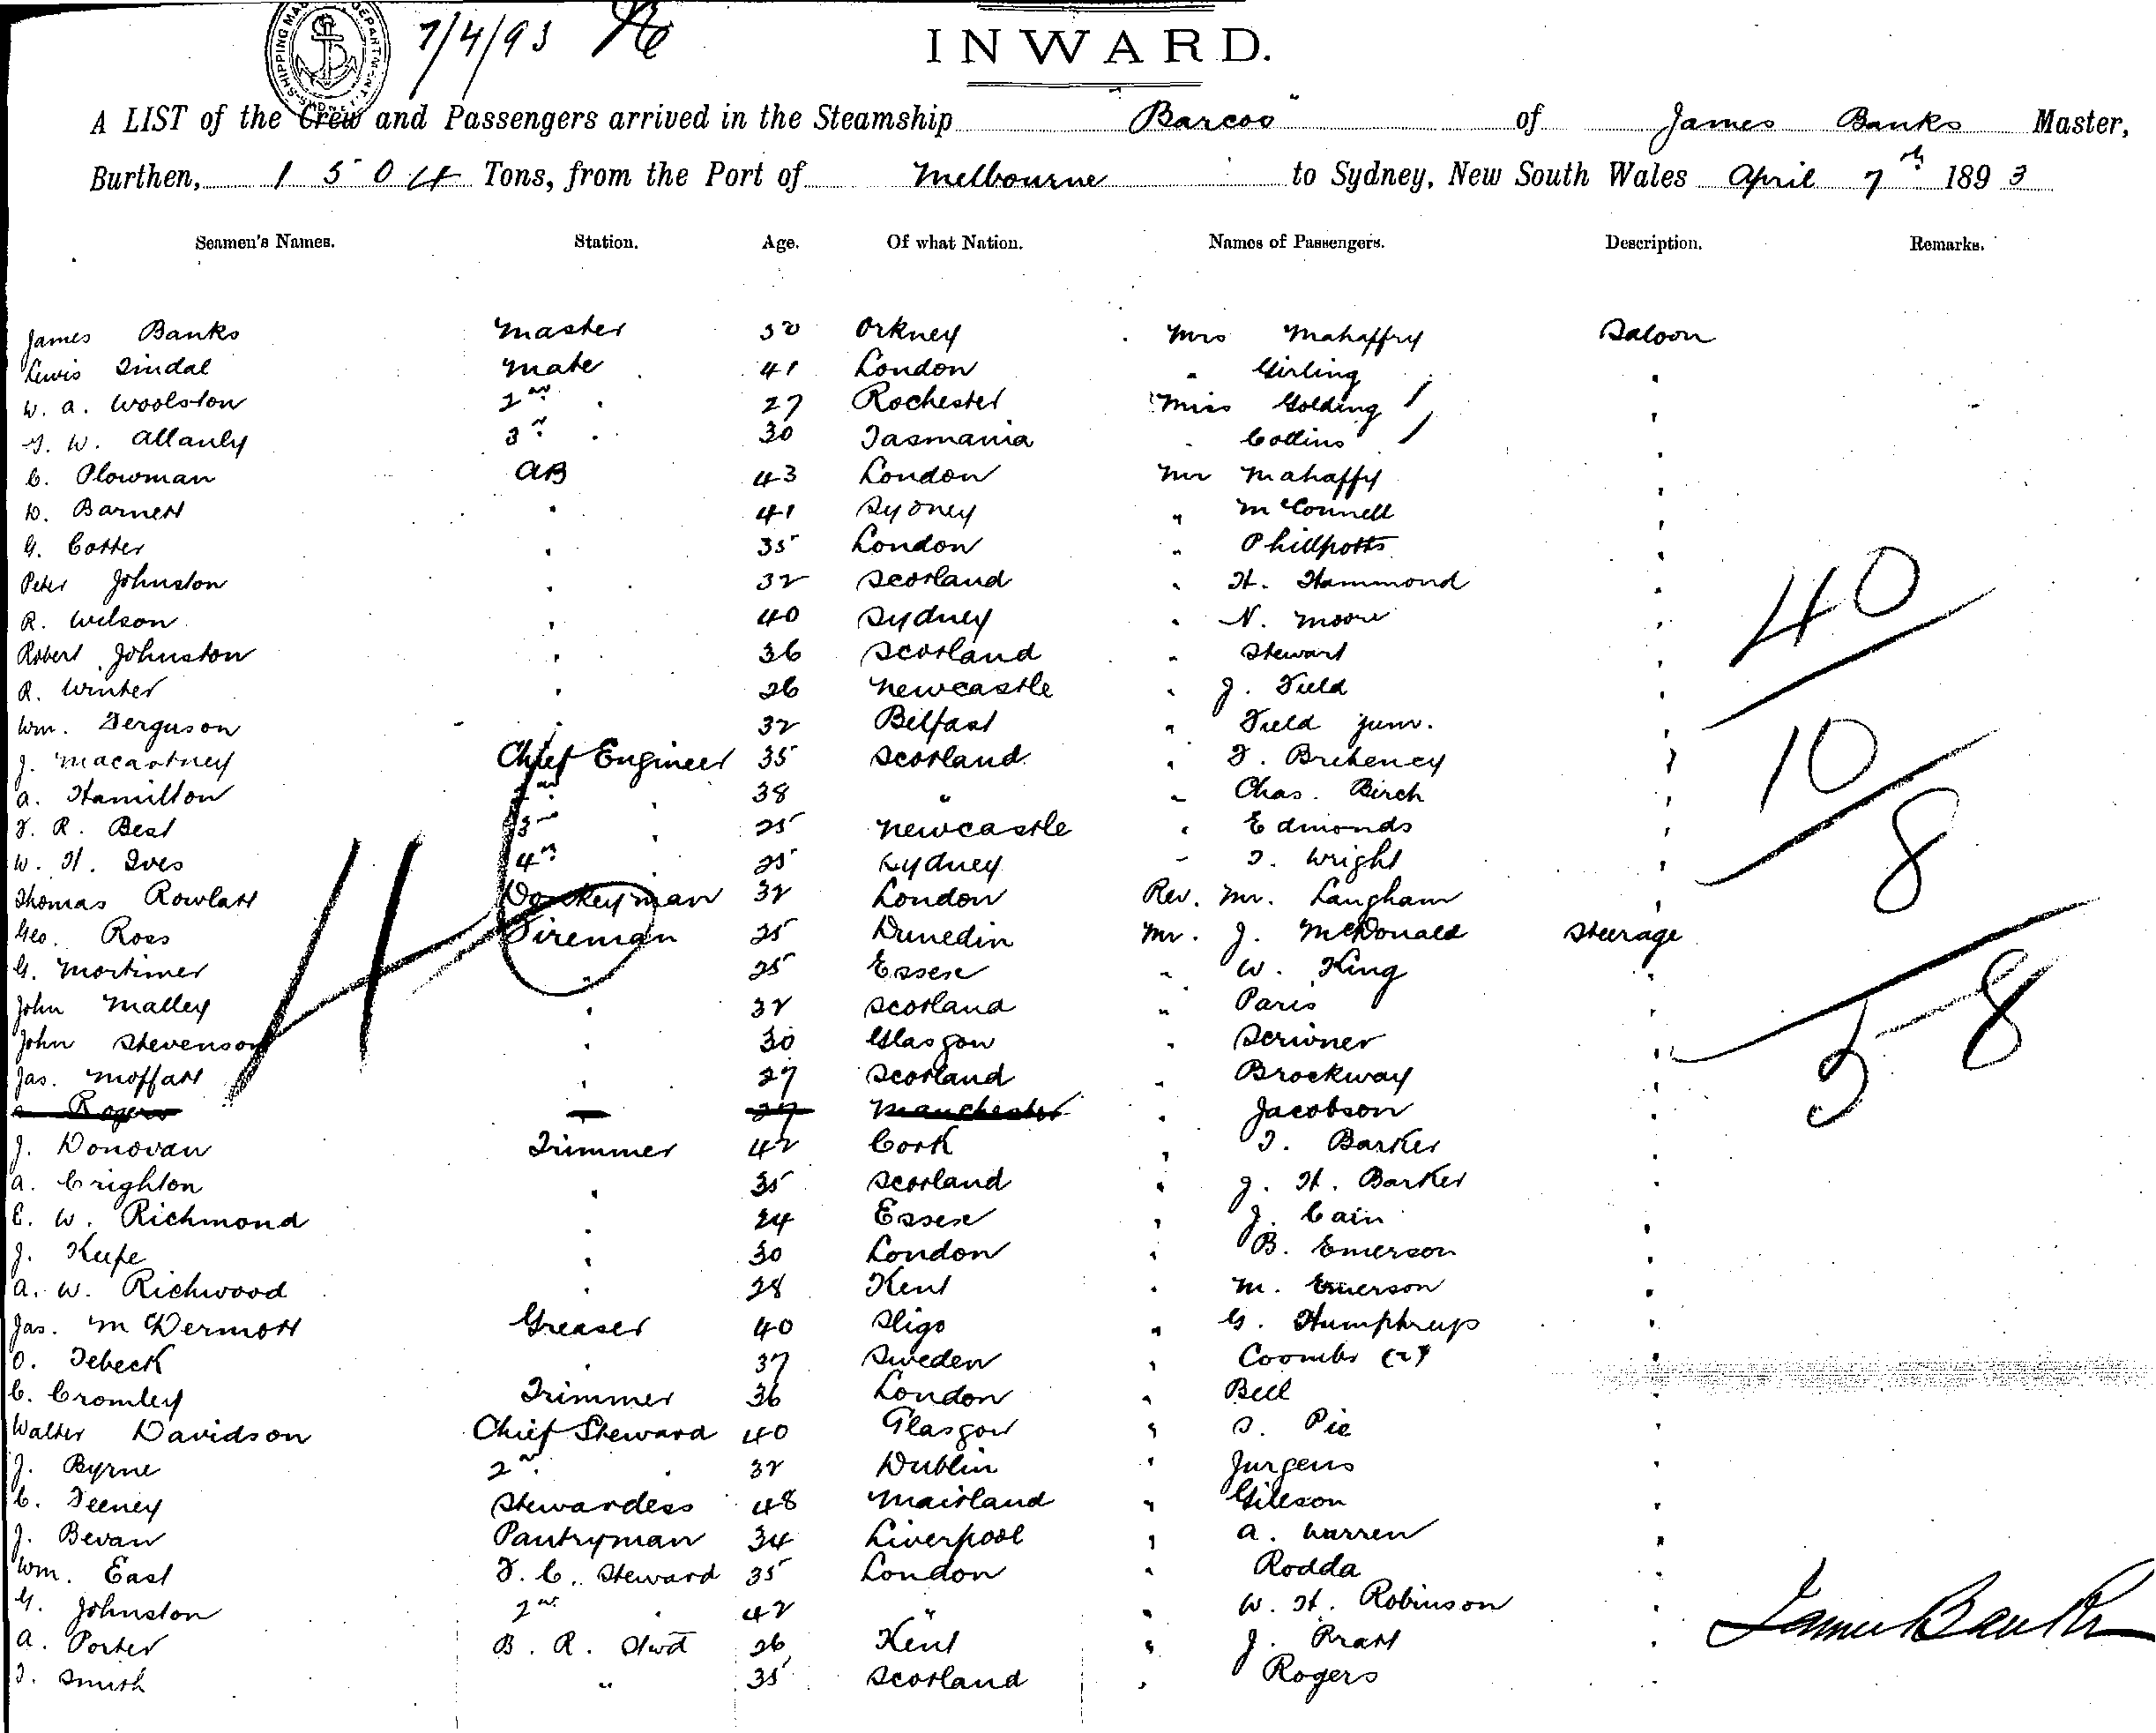 SHIPPING MA DEPARTMENT SYDNEY
7/4/93
INWARD.
A LIST of the Crew and Passengers arrived in the Steamship "Barcoo" of James Banks Master,
Burthen, 1504 Tons, from the Port of Melbourne to Sydney, New South Wales April 7th 1893
Seamen's Names. Station. Age. Of what Nation. Names of Passengers. Description. Remarks.
James Banks Master 50 Orkney Mrs Mahaffry Saloon
Lewis Tindal Mate 41 London " Girling "
W. A. Woolston 2nd " 27 Rochester Miss Golding "
W. Allanly 3rd " 30 Tasmania " Collins "
C. Plowman AB 43 London Mr Mahaffy "
D. Barnett " 41 Sydney " McConnell "
G. Cotter " 35 London " Phillpotts "
Peter Johnston " 32 Scotland " H. Hammond "
R. Wilson " 40 Sydney " N. Moore "
Robert Johnston " 36 Scotland " Stewart "
R. Winter " 26 Newcastle " J. Field "
Wm. Ferguson " 32 Belfast " Field junr. "
J. Macartney Chief Engineer 35 Scotland " F. Breheney "
A. Hamilton 2nd " 38 " " Chas. Birch "
F. R. Best 3rd " 25 Newcastle " Edmonds "
W. H. Ives 4th 25 Sydney " T. Wright "
Thomas Rowlatt Donkeyman 32 London Rev. Mr. Langham "
Geo. Ross Fireman 25 Dunedin Mr. J. McDonald Steerage
G. Mortimer " 25 Essex " W. King "
John Malley " 32 Scotland " Paris "
John Stevenson " 30 Glasgow " Scrivner "
Jas. Moffatt " 27 Scotland " Brockway "
Rogers " 27 Manchester " Jacobson "
J. Donovan Trimmer 42 Cork " T. Barker "
A. Crighton " 35 Scotland " J. H. Barker "
E. W. Richmond " 24 Essex " J. Cain "
J. Keefe " 30 London " B. Emerson "
A. W. Richwood " 28 Kent " M. Emerson "
Jas. McDermott Greaser 40 Sligo " G. Humphreys "
O. Tebeck " 37 Sweden " Coombs (2) "
C. Cromley Trimmer 36 London " Bell "
Walter Davidson Chief Steward 40 Glasgow " S. Pie "
J. Byrne 2nd " 32 Dublin " Jurgens "
C. Feeney Stewardess 48 Maitland " Gilleson "
J. Bevan Pantryman 34 Liverpool " A. Warren "
Wm. East F. C. Steward 35 London " Rodda "
G. Johnston 2nd " 42 " " W. H. Robinson "
A. Porter B. R. Stwd 26 Kent " J. Pratt "
T. Smith " 35 Scotland " Rogers "
40
10
8
58
James Banks